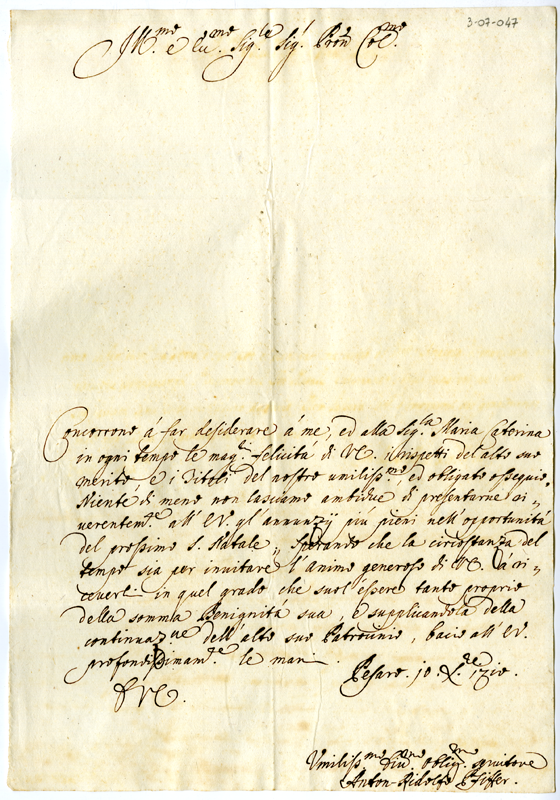 3-07-047
Ill.mo e Ecc.mo Sig.re Sig.r Pron Col.mo
Concorrono á far desiderare á me, ed alla Sig.ra Maria Caterina
in ogni tempo le mag.ri felicita di V.E. i rispetti del alto suo
merito e i Titoli del nostro umiliss.mo ed obligato ossequio.
Niente di meno non lasciamo ambidue di presentarne ri„
verentem.te all' E.V. gl'annunzij piu pieni nell'opportunitá
del prossimo S. Natale„ Sperando che la circostanza del
tempo sia per invitare l'animo generoso di V.E. a ri„
ceverli in quel grado che suol'essere tanto proprio
della somma Benignitá sua, e supplicandola della
continuaz.ne dell'alto suo Patrocinio, bacio all'E.V.
profondissimam.te le mani.
Pesaro. 10 X.re 1710.
Umiliss.mo Div.mo Oblig.mo servitore
Anton-Ridolfo Pfiffer.